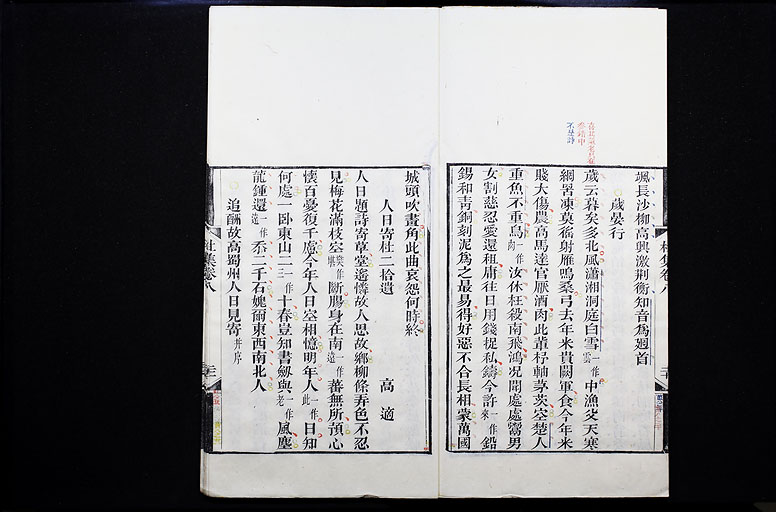 颯長沙柳高興激荊衡知音爲迴首
歲晏行
歲云暮矣多北風瀟湘洞庭白雪一作雲中漁父天寒
網罟凍莫徭射雁鳴桑弓去年米貴闕軍食今年米
賤大傷農高馬達官厭酒肉此輩杼軸茅茨空楚人
重魚不重鳥一作肉汝休枉殺南飛鴻况聞處處鬻男
女割慈忍愛還租庸往日用錢捉私鑄今許一作來鉛
錫和青銅刻泥爲之最易得好惡不合長相蒙萬國
城頭吹畫角此曲哀怨何時終
人日寄杜二拾遺
高適
人日題詩寄草堂遙憐故人思故鄉柳條弄色不忍
見梅花滿枝空一作堪斷腸身在南一作遠蕃無所預心
懷百憂復千慮今年人日空相憶明年人一作此日知
何處一卧東山二一作三十春豈知書劒與一作老風塵
龍鍾還一作遠忝二千石媿爾東西南北人
追酬故高蜀州人日見寄并序
杜集卷八
不是詩